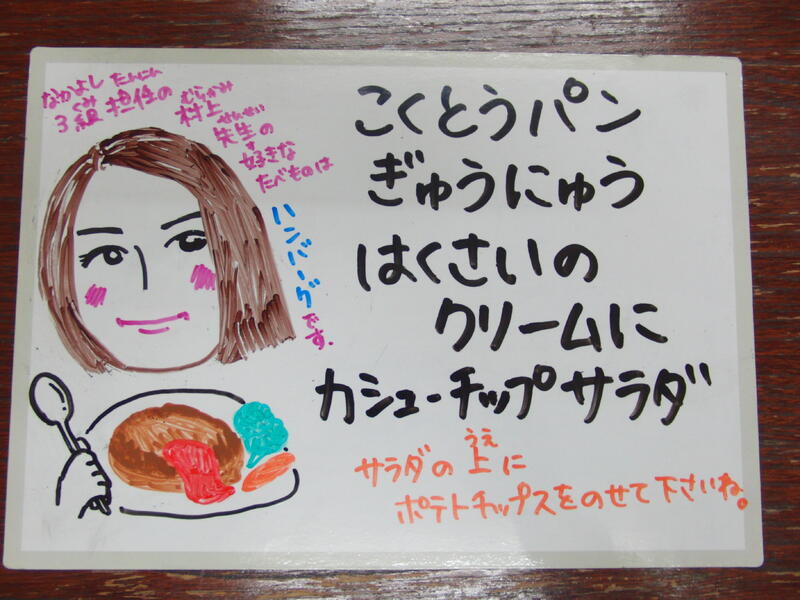 なかよし たんにん
3組 担任の
くみ
むらかみ
村上
せんせい
先生の
す
好きな
たべものは
ハンバーグです.
こくとうパン
ぎゅうにゅう
はくさいの
クリームに
カシューチップサラダ
うえ
サラダの上に
ポテトチップスをのせて下さいね。